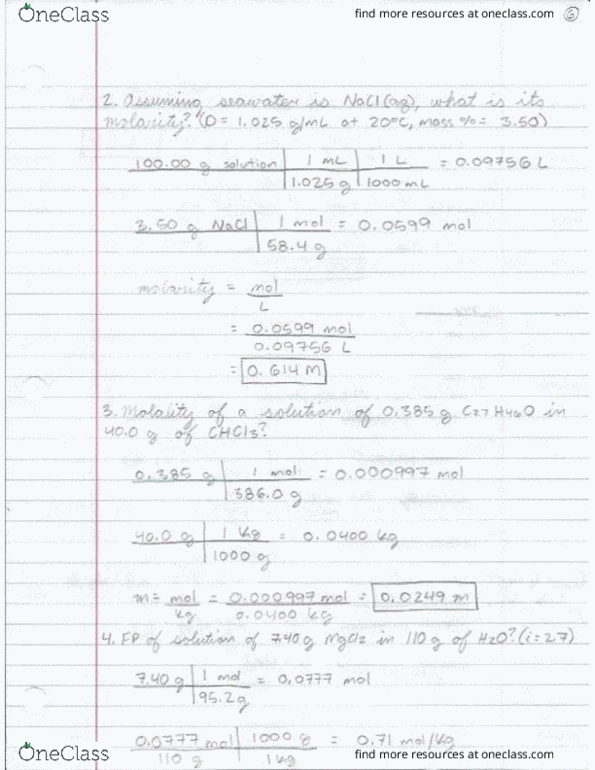 OneClass
find more resources at oneclass.com
6
2. Assuming seawater is NaCl(aq), what is its
molarity? (D = 1.025 g/mL at 20°C, mass % = 3.50)
100.00 g solution | 1 mL | 1 L = 0.09756 L
1.025 g | 1000 mL
3.50 g NaCl | 1 mol = 0.0599 mol
58.4 g
molarity = mol
L
= 0.0599 mol
0.09756 L
= 0.614 M
3. Molality of a solution of 0.385 g C27H46O in
40.0 g of CHCl3?
0.385 g | 1 mol = 0.000997 mol
386.0 g
40.0 g | 1 kg = 0.0400 kg
1000 g
m = mol = 0.000997 mol = 0.0249 m
kg 0.0400 kg
4. FP of solution of 7.40 g MgCl2 in 110 g of H2O? (i = 2.7)
7.40 g | 1 mol = 0.0777 mol
95.2 g
0.0777 mol | 1000 g = 0.71 mol/kg
110 g | 1 kg
OneClass
find more resources at oneclass.com